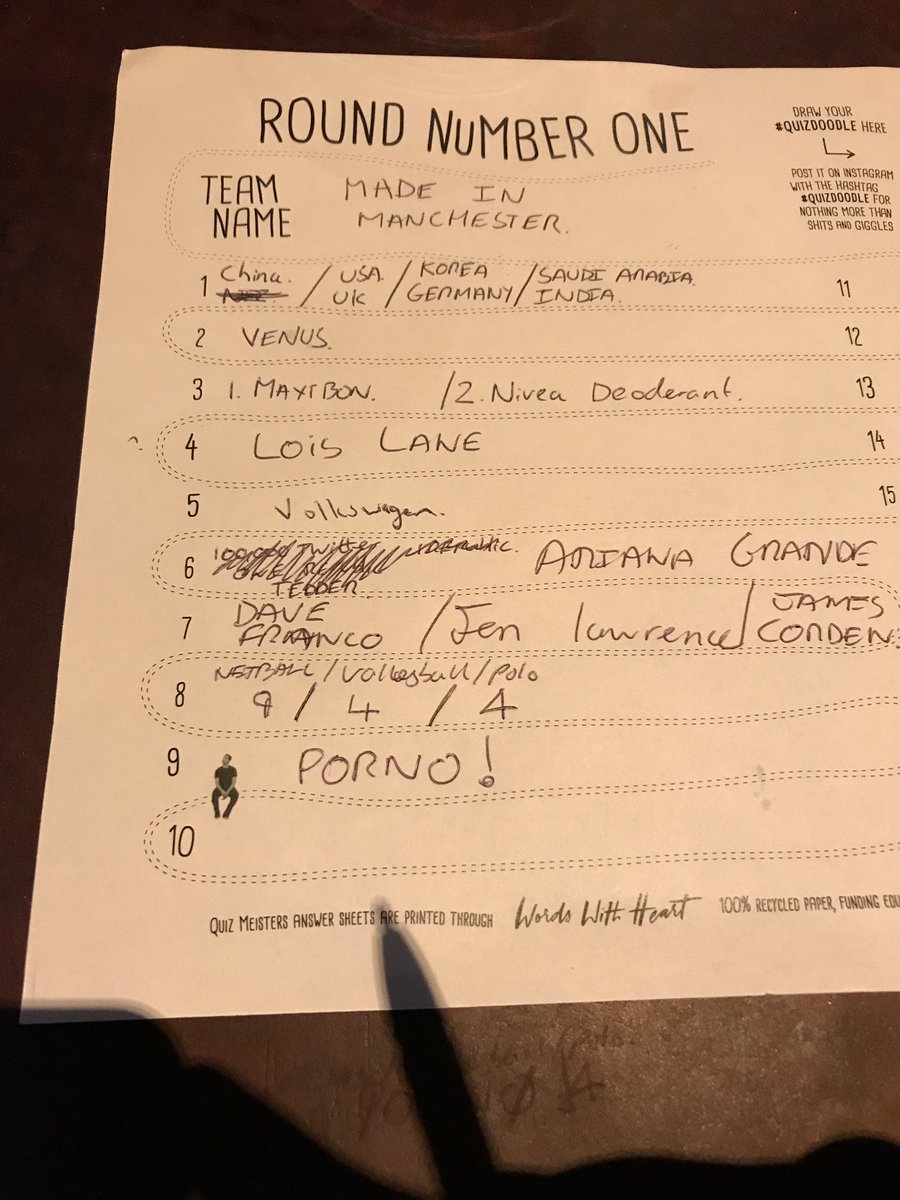 ROUND NUMBER ONE
DRAW YOUR
#QUIZDOODLE HERE
POST IT ON INSTAGRAM
WITH THE HASHTAG
#QUIZDOODLE FOR
NOTHING MORE THAN
SHITS AND GIGGLES
TEAM NAME MADE IN
MANCHESTER.
1 China. / USA / KOREA / SAUDI ARABIA
UK GERMANY INDIA.
11
2 VENUS.
12
3 1. MAXIBON. / 2. Nivea Deoderant.
13
4 LOIS LANE
14
5 Volkswagen.
15
6 ARIANA GRANDE
TEDDER
7 DAVE FRANCO / Jen lawrence / JAMES CORDEN
8 NETBALL / Volleyball / Polo
9 / 4 / 4
9 PORNO!
10
QUIZ MEISTERS ANSWER SHEETS ARE PRINTED THROUGH Words With Heart 100% RECYCLED PAPER, FUNDING EDU